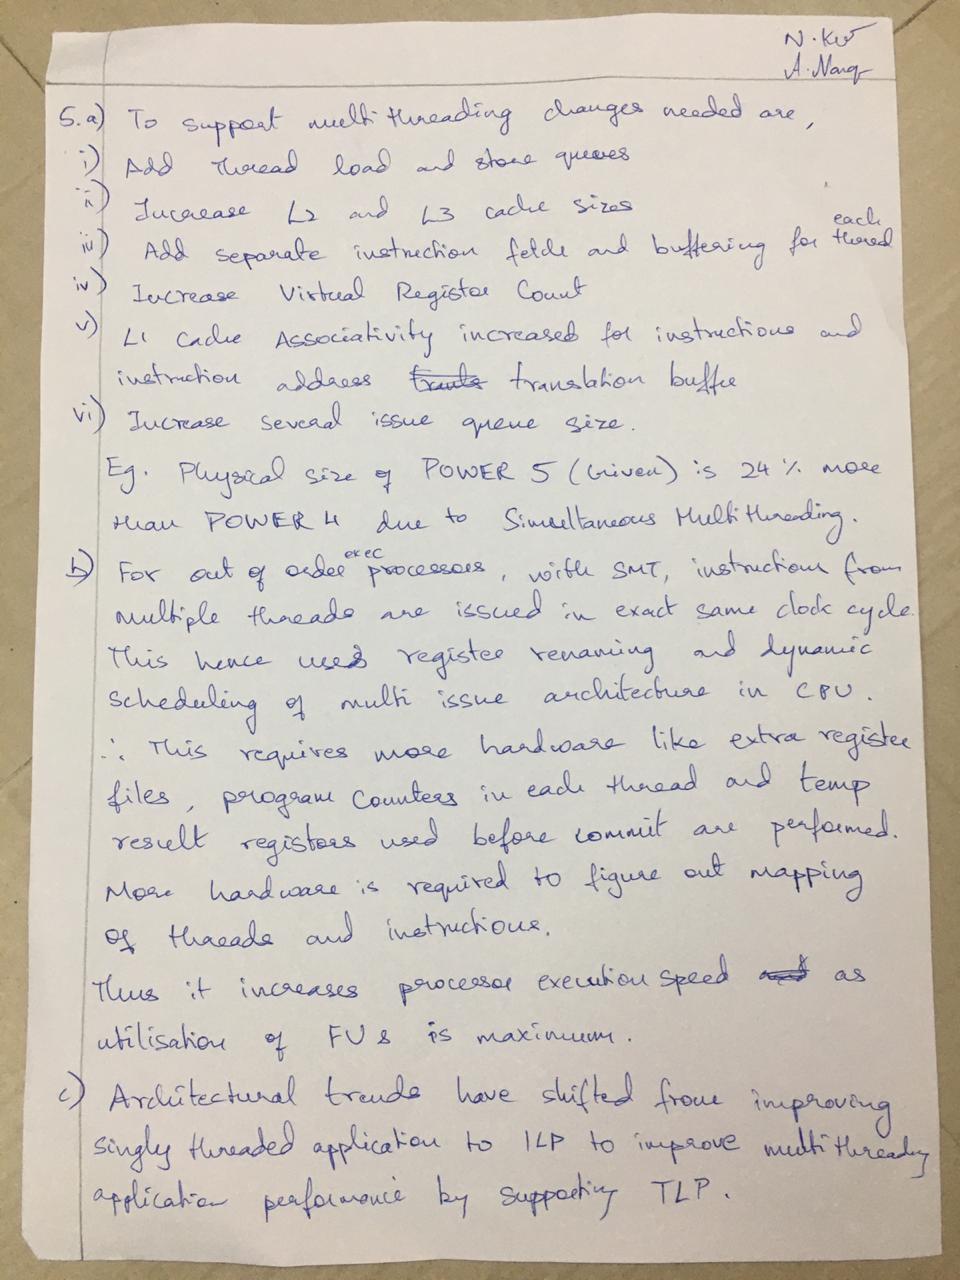 N. Ku
A. Narg
5.a) To support multithreading changes needed are,
i) Add thread load and store queues
ii) Increase L2 and L3 cache sizes
iii) Add separate instruction fetch and buffering for each thread
iv) Increase Virtual Register Count
v) L1 cache Associativity increased for instructions and
instruction address translation buffer
vi) Increase several issue queue size.
Eg. Physical size of POWER 5 (Given) is 24% more
than POWER 4 due to Simultaneous Multithreading.
b) For out of order exec processors, with SMT, instructions from
multiple threads are issued in exact same clock cycle.
This hence uses register renaming and dynamic
scheduling of multi issue architecture in CPU.
∴ This requires more hardware like extra register
files, program counters in each thread and temp
result registors used before commit are performed.
More hardware is required to figure out mapping
of threads and instructions.
Thus it increases processor execution speed as
utilisation of FUs is maximum.
c) Architectural trends have shifted from improving
singly threaded application to ILP to improve multithreading
application performance by supporting TLP.